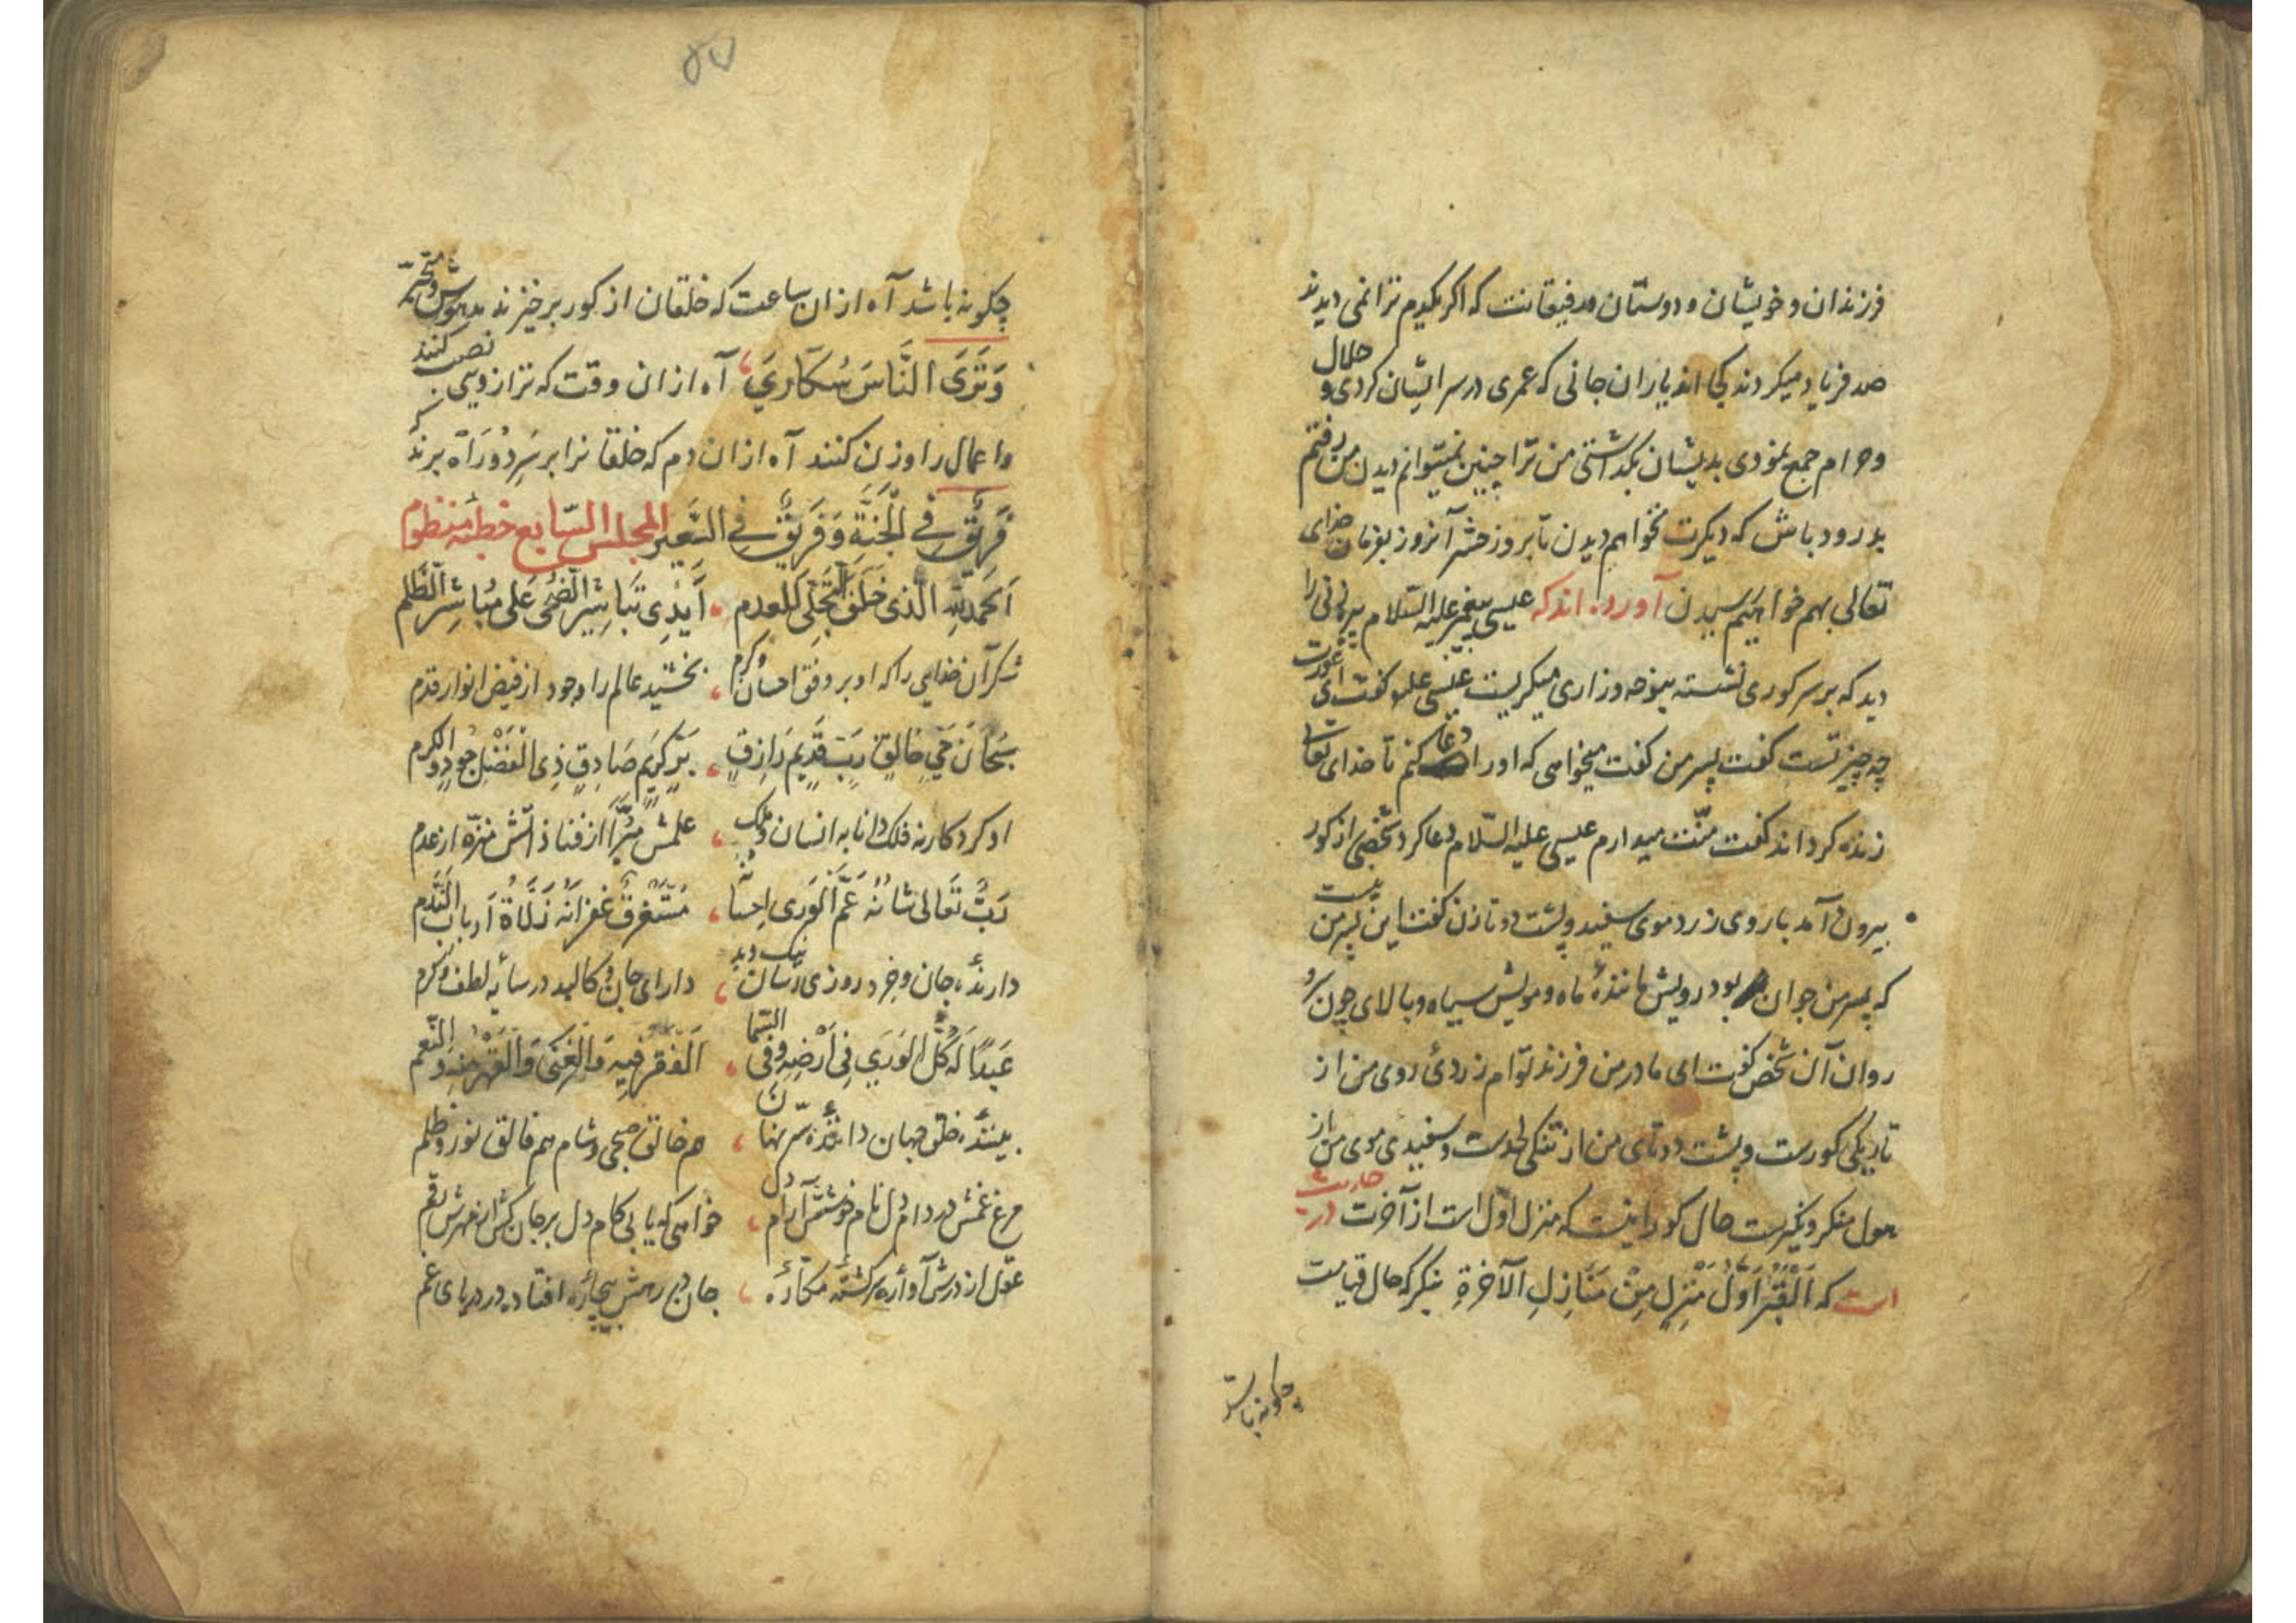 فرزندان و خویشان و دوستان و رفیقانت که اکر یکدم ترا نمی دیدند
صد فریاد میکردند کجا اند یاران جانی که عمری در سر ایشان کردی و حلال
و حرام جمع نمودی بدیشان بگذاشتی من ترا چنین نمیتوانم دیدن من رفتم
بدرود باش که دیکرت نخواهم دیدن تا بروز حشر آنروز بفرمان خدای
تعالی بهم خواهیم رسیدن آورده اند که عیسی پیغمبر علیه السّلام پیرزنی را
دید که بر سر کوری نشسته بنوحه و زاری میکریست عیسی علیه کفت ای عورت
چه چیز تست کفت پسر من کفت میخواهی که او را دعا کنم تا خدای تعالی
زنده کرداند کفت منّت میدارم عیسی علیه السّلام دعا کرد شخصی از کور
بیرون آمد با روی زرد موی سفید و پشت دوتا زن کفت این پسر من نیست
که پسر من جوان بود رویش مانندهٔ ماه و مویش سیاه و بالای چون سرو
روان آن شخص کفت ای مادر من فرزند توام زردیٔ روی من از
تاریکی کورست و پشت دوتای من از تنکی لحدست و سفیدی موی من از
هول منکر و نکیرست حال کور اینست که منزل اوّل است از آخرت در حدیث
است که اَلْقَبْرُ اَوَّلُ مَنْزِلٍ مِنْ مَنَازِلِ الآخرةِ بنکر که حال قیامت
چکونه باشد
۵۷
چکونه باشد آه از ان ساعت که خلقان از کور برخیزند مدهوش و متحیّر
وَتَرَی النَّاسَ سُکَارَی آه از ان وقت که ترازوی نصب کنند
و اعمال را وزن کنند آه از ان دم که خلقانرا بر سَرِ دُو رَاه برند که
فَرِیقٌ فِی الْجَنَّةِ وَفَرِیقٌ فِی السَّعِیرِ المجلس السّابع خطبهٔ منظوم
اَلحَمدُ لِلّهِ الَّذی خَلَقَ التَّجَلِّی للعدم اَیْدِی تَبَاشِیرِ الضُّحَی عَلی مُبَاشِرِ الظُّلَم
شکر آن خدایی را که او بر وفق احسان و کرم بخشید عالم را وجود از فیض انوار قدم
سُبحَانَ حَیٍّ خالِقٍ رَبٍّ قَدِیمٍ رَازِقٍ بَرٍّ کَرِیمٍ صَادِقٍ ذِی الْفَضْلِ جُودٍ و الکرم
او کردکار نه فلک دانا به انسان و ملک علمش مبرّا از فنا ذاتش منزّه از عدم
رَبٌّ تَعَالی شَانُهُ عَمَّ الوَرَی اِحسانُه مُسْتَغرِقٌ غفرانُهُ زَلَّاةُ اَربابِ النَّدَم
دارندهٔ جان و خرد روزی رسان نیک و بد دارای جان و کالبد در سایهٔ لطف و کرم
عَبداً لَهُ کُلُّ الوَرَی فِی اَرْضِهِ وَفِی السَّمَا اَلفَقرُ فِیهِ وَالغِنَی وَالقَهْرُ مِنهُ وَالنِّعَم
بینندهٔ خلق جهان دانندهٔ سرّ نهان هم خالق صبح و شام هم فالق نور و ظلم
مرغ غمش در دام دل نام خوشش آرام دل خواهی که یابی کام دل بر جان کش از مهرش رقم
عقل از درش آواره سرکشته مکّاره جان در رهش بیچاره افتاده در دریای غم